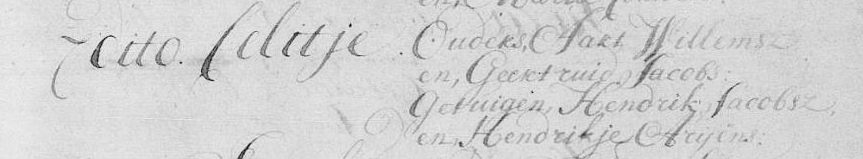 Dito. Celitje. Ouders, Aart Willemsz
en, Geertruid Jacobs:
Getuigen, Hendrik Jacobsz,
en, Hendrikje Aryens: